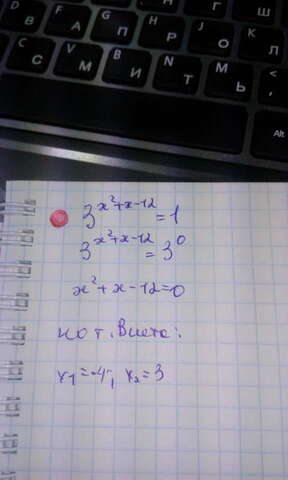 D В
F А
G П
H Р
J О
K Л
C С
V М
B И
N Т
M Ь
<
Г
Ш
Alt
3^(x²+x-12) = 1
3^(x²+x-12) = 3^0
x²+x-12=0
по т. Виета:
x₁=-4; x₂=3